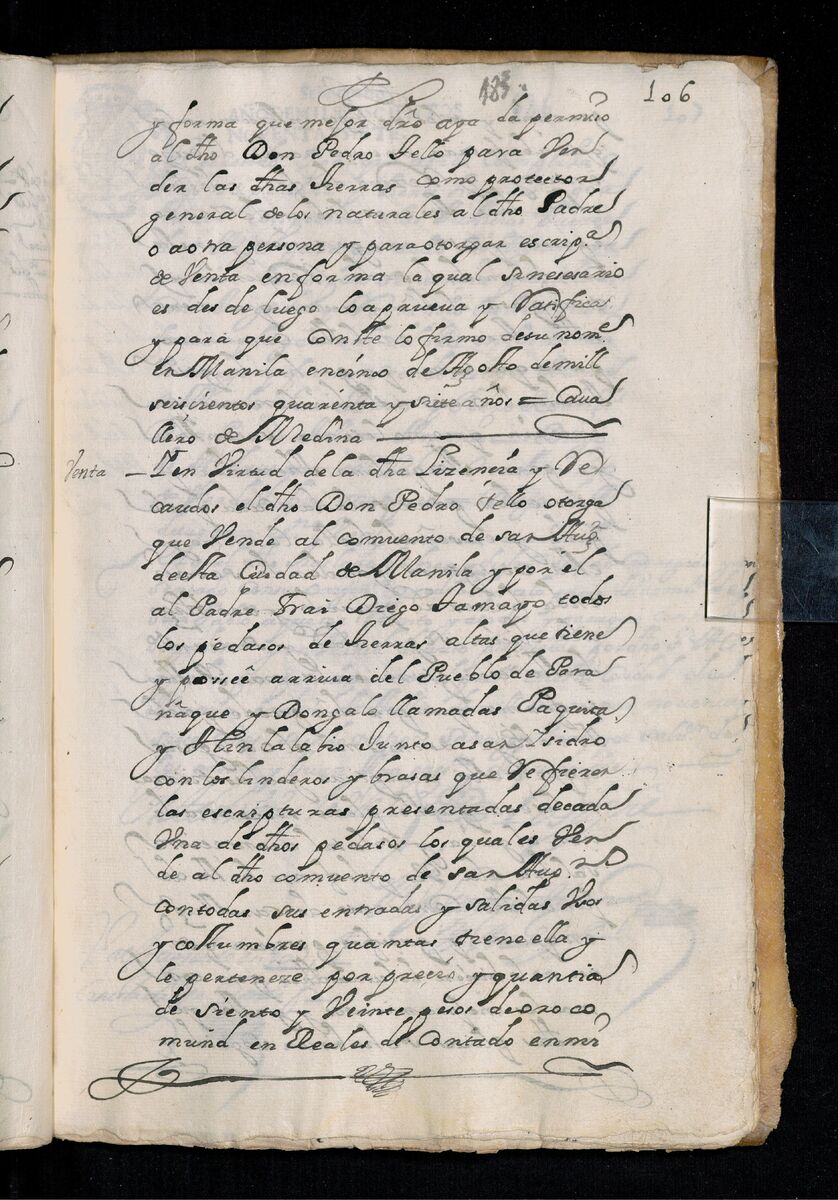 185
106
y forma que mejor dr̃o aya da permiso
al dho Don Pedro Tello para Ven
der las dhas tierras como protector
general de los naturales al dho Padre
o a otra persona y para otorgar escripª
de Venta en forma la qual si nesesario
es des de luego lo aprueva y Ratifica
y para que Conste lo firmo de su nome
en Manila en cinco de Agosto de mill
seiscientos quarenta y siete años = Cava
llero de Medina
Venta – I en Virtud de la dha Lizencia y Re
caudos el dho Don Pedro Tello otorga
que Vende al comvento de san Augn
de esta Ciudad de Manila y por el
al Padre Frai Diego Tamayo todos
los pedasos de tierras altas que tiene
y poseê arriva del Pueblo de Para
ñaque y Dongalo llamadas Paquita
y Hinlalabio Junto a san Isidro
con los linderos y brasas que Refieren
las escripturas presentadas de cada
Vna de dhos pedasos los quales Ven
de al dho comvento de san Augno
con todas sus entradas y salidas Vsos
y costumbres quantas tiene ella y
le perteneze por precio y quantia
de siento y Veinte pesos de oro co
mund en Reales de Contado en mi